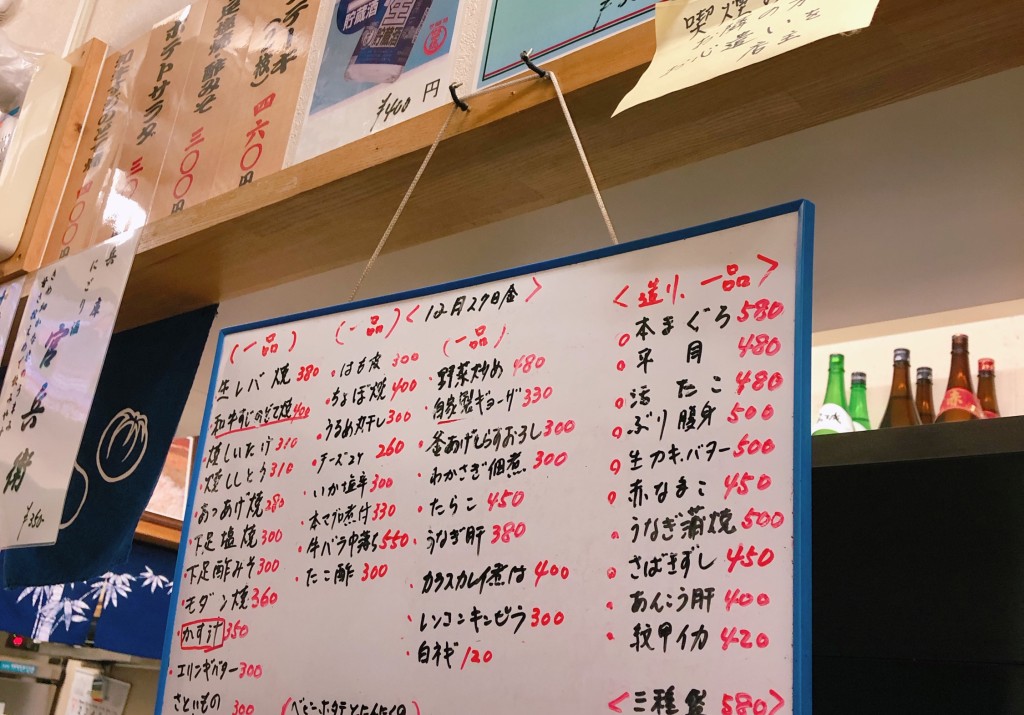 ポテトサラダ 三〇〇円
酢みそ 三〇〇円
四六〇円
貯蔵酒
¥400円
喫煙
店主
にごり酒
官兵衛
12月27日金
(一品)
生レバ焼 380
和牛すじのどて焼 400
焼しいたけ 310
焼ししとう 310
あつあげ焼 280
下足塩焼 300
下足酢みそ 300
モダン焼 360
かす汁 350
エリンギバター 300
さといもの 300
(一品)
はも皮 300
ちょぼ焼 400
うるめ丸干し 300
チーズコケ 260
いか塩辛 300
本マグロ煮付 330
牛バラ中落ち 550
たこ酢 300
(一品)
野菜炒め 480
自家製ギョーザ 330
釜あげしらすおろし 300
わかさぎ佃煮 300
たらこ 450
うなぎ肝 380
カラスカレイ煮付 400
レンコンキンピラ 300
白ネギ 120
<造り、一品>
本まぐろ 580
平貝 480
活たこ 480
ぶり腹身 500
生カキ、バター 500
赤なまこ 450
うなぎ蒲焼 500
さばきずし 450
あんこう肝 400
紋甲イカ 420
<三種盛 580>